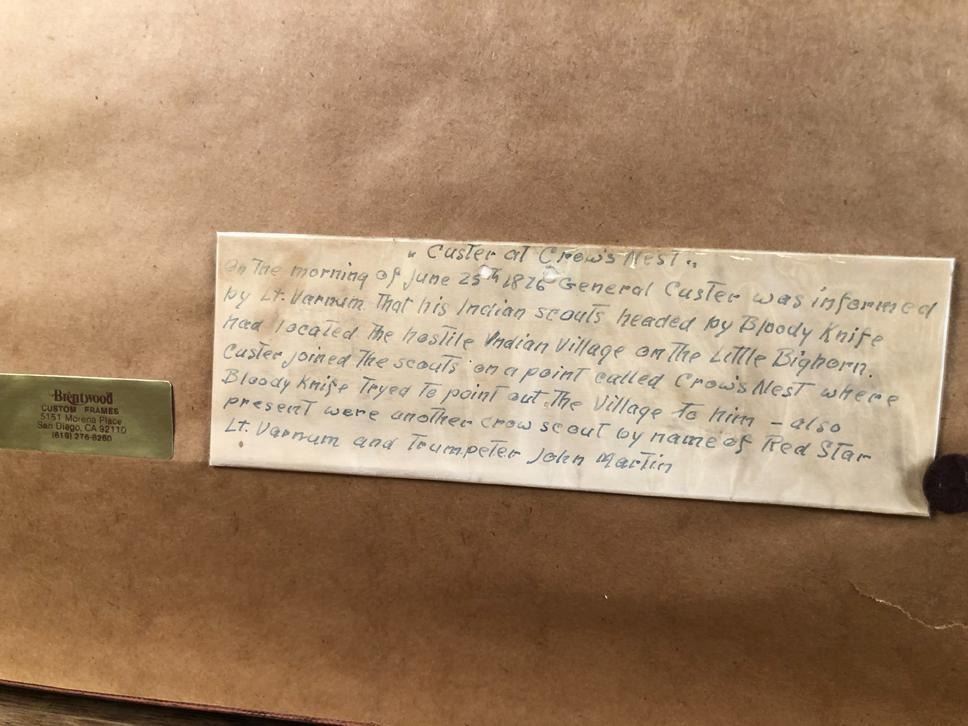 „ Custer at Crow's Nest „
On The morning of June 25th 1876 General Custer was informed
by Lt. Varnum That his Indian scouts headed by Bloody Knife
had located The hostile Indian Village on The Little Bighorn.
Custer joined The scouts on a point called Crow's Nest where
Bloody Knife Tryed To point out The Village To him – also
present were another crow scout by name of Red Star
Lt. Varnum and Trumpeter John Martin
Brentwood
CUSTOM FRAMES
5151 Morena Place
San Diego, CA 92110
(619) 276-6260